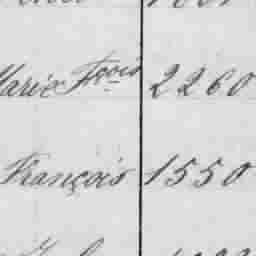 Marie Fçois 2260
François 1550